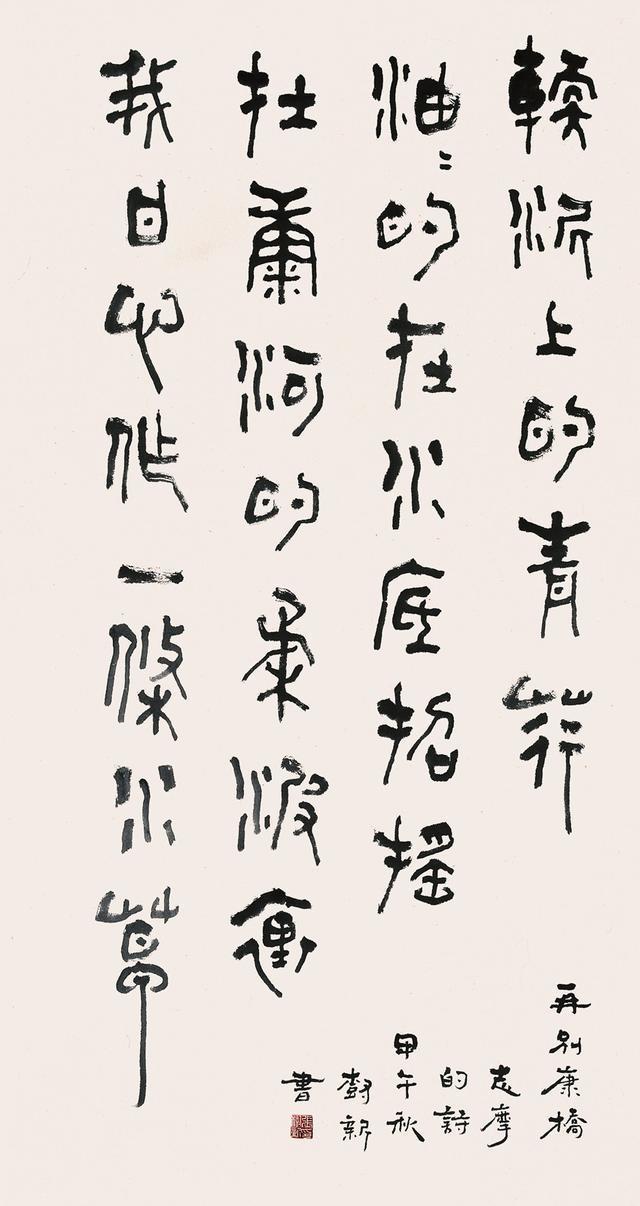 軟泥上的青荇
油〻的在水底招搖
在康河的柔波裏
我甘心作一條水草
再別康橋
志摩
的詩
甲午秋
樹新
書